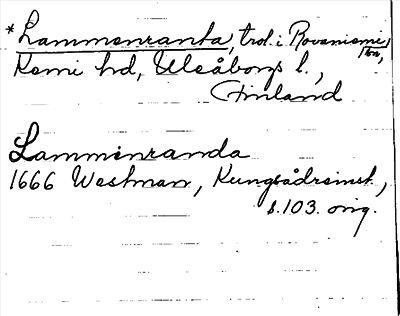 *Lammenranta, trol. i Rovaniemi
tn,
Kemi hd, Uleåborgs l.,
Finland
Lamminranda
1666 Westman, Kungsådreinst.,
s. 103. orig.